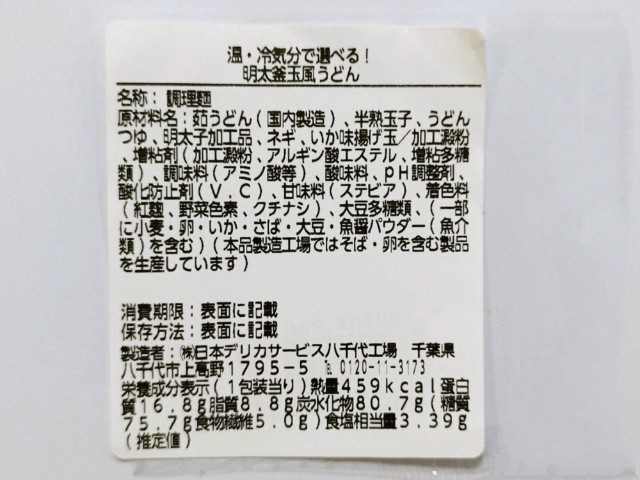 温・冷気分で選べる！
明太釜玉風うどん
名称：調理麺
原材料名：茹うどん（国内製造）、半熟玉子、うどん
つゆ、明太子加工品、ネギ、いか味揚げ玉／加工澱粉
、増粘剤（加工澱粉、アルギン酸エステル、増粘多糖
類）、調味料（アミノ酸等）、酸味料、ｐＨ調整剤、
酸化防止剤（Ｖ．Ｃ）、甘味料（ステビア）、着色料
（紅麹、野菜色素、クチナシ）、大豆多糖類、（一部
に小麦・卵・いか・さば・大豆・魚醤パウダー（魚介
類）を含む）（本品製造工場ではそば・卵を含む製品
を生産しています）
消費期限：表面に記載
保存方法：表面に記載
製造者：㈱日本デリカサービス八千代工場　千葉県
八千代市上高野１７９５－５　℡ 0120-11-3173
栄養成分表示（１包装当り）熱量４５９ｋｃａｌ蛋白
質１６．８ｇ脂質８．８ｇ炭水化物８０．７ｇ（糖質
７５．７ｇ食物繊維５．０ｇ）食塩相当量３．３９ｇ
（推定値）